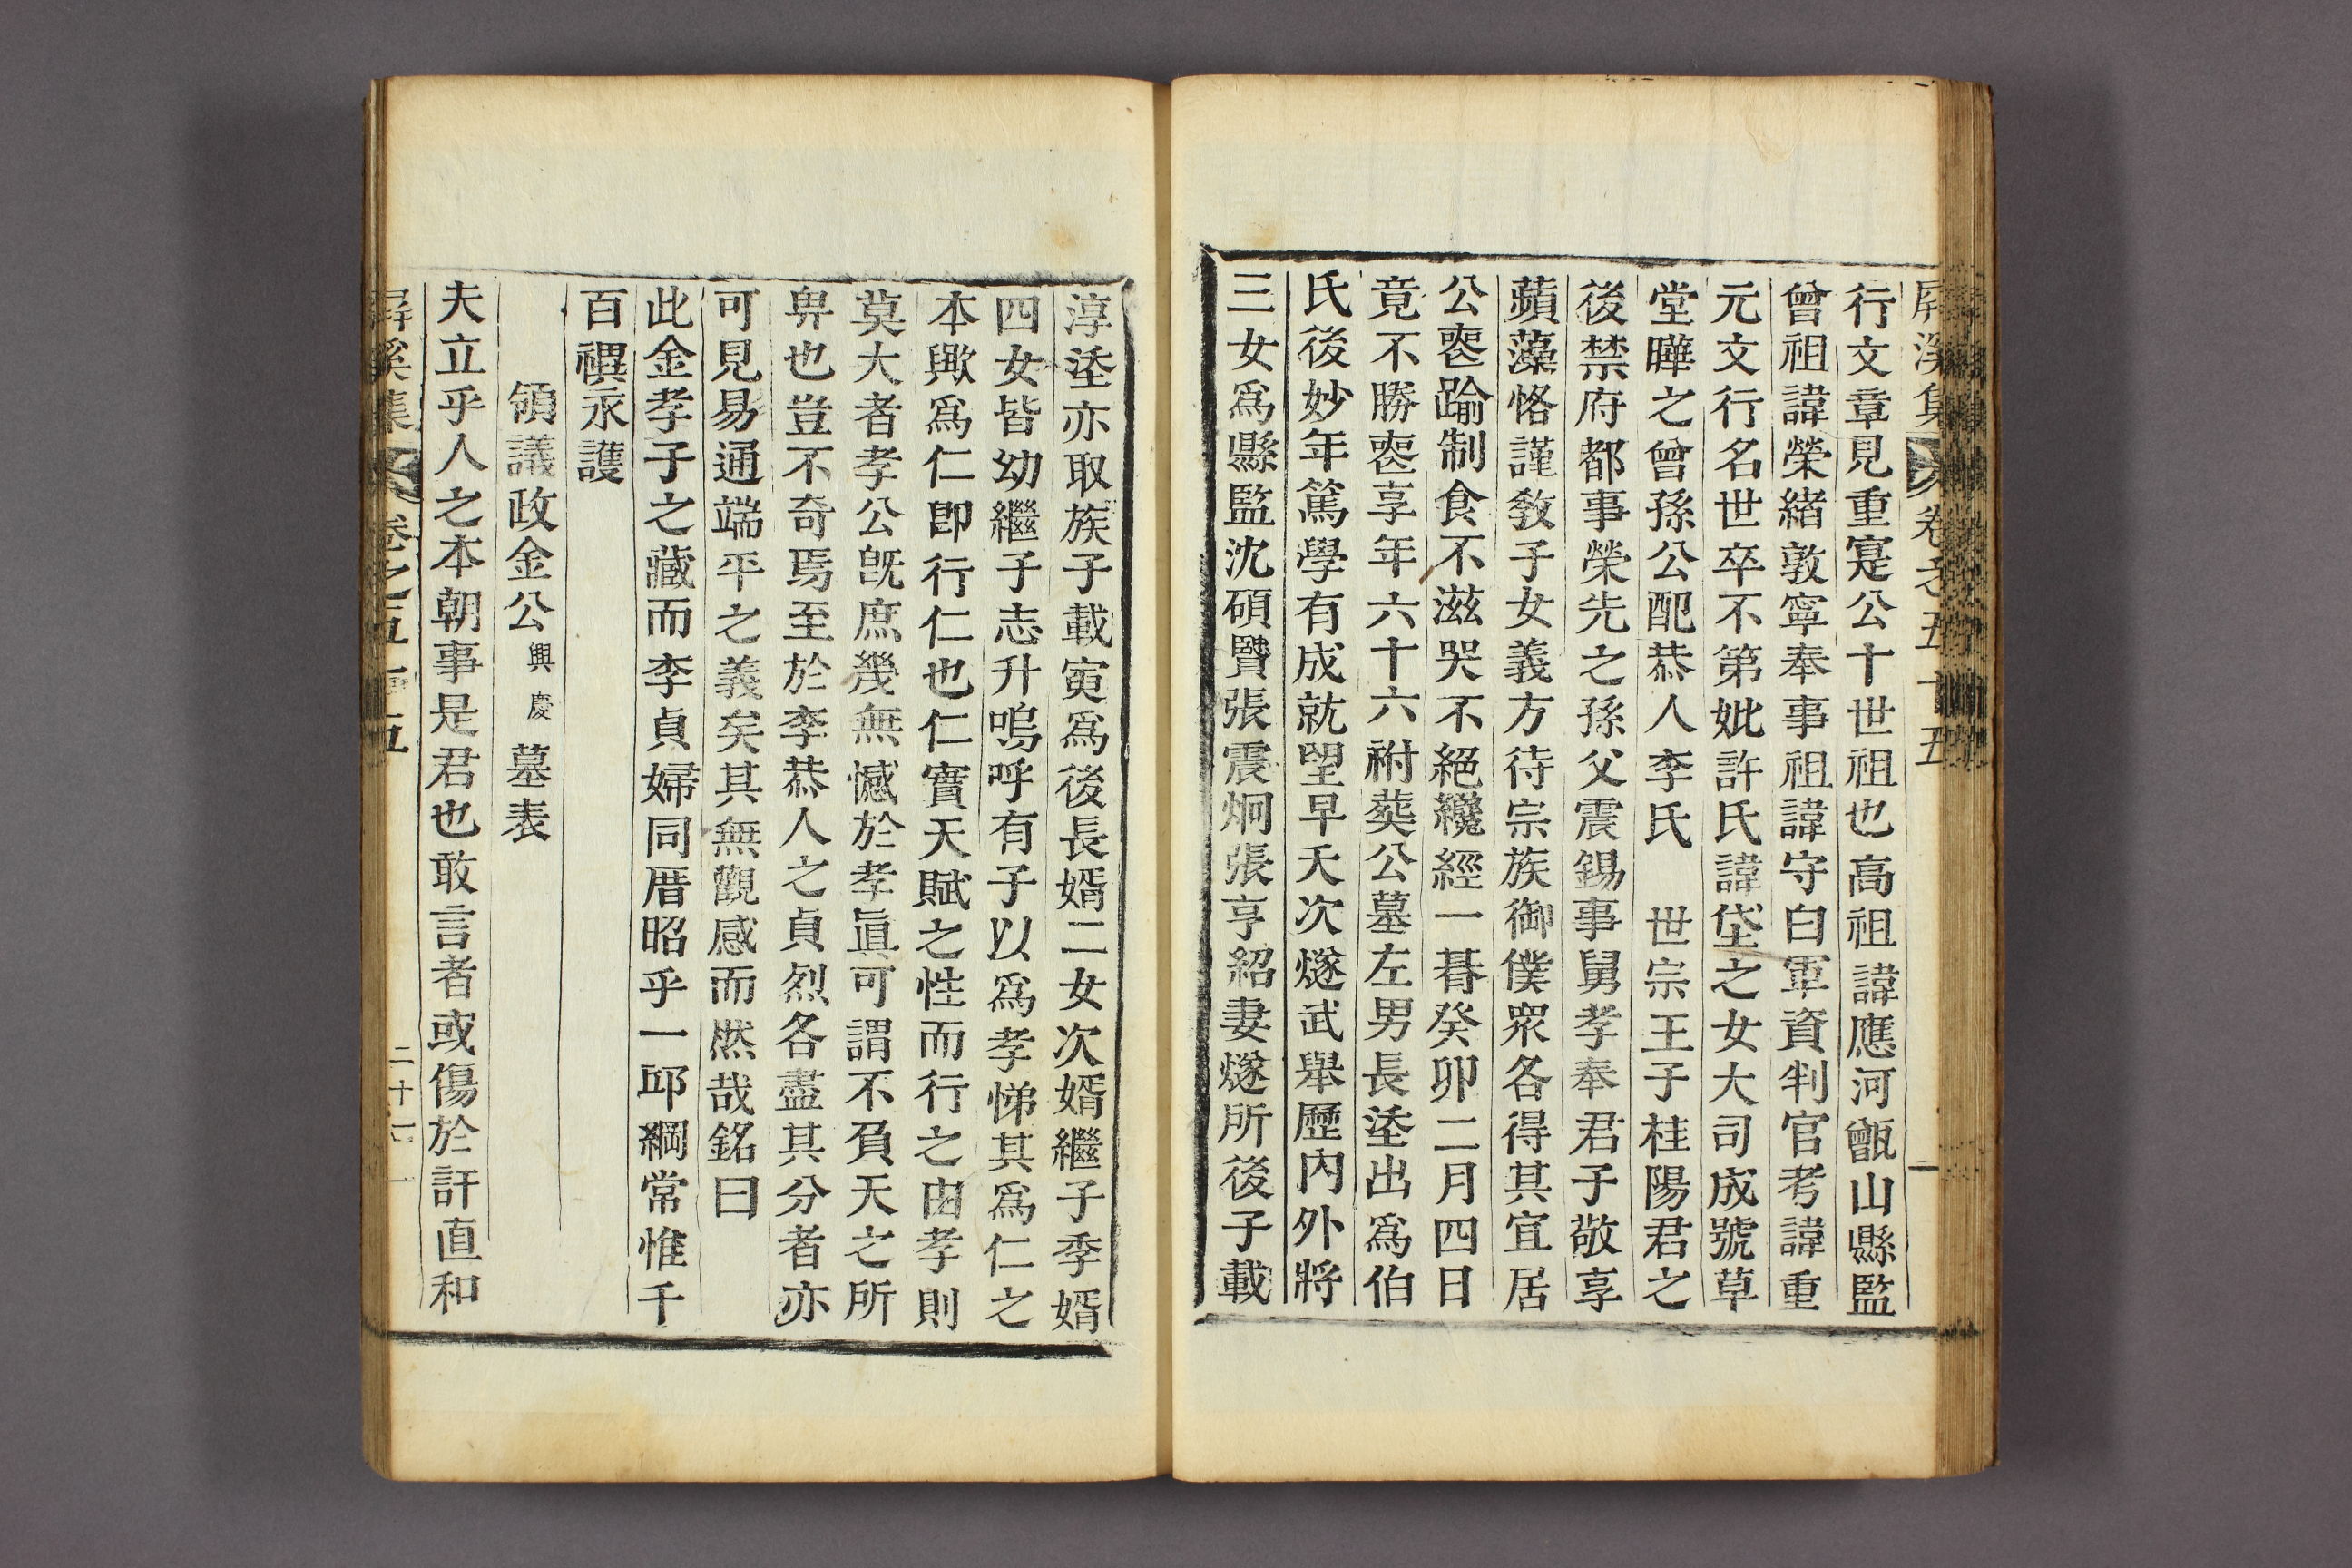 屛溪集
卷之五十五
行文章見重寔公十世祖也高祖諱應河甑山縣監
曾祖諱榮緖敦寧奉事祖諱守白軍資判官考諱重
元文行名世卒不第妣許氏諱垈之女大司成號草
堂曄之曾孫公配恭人李氏　世宗王子桂陽君之
後禁府都事榮先之孫父震錫事舅孝奉君子敬享
蘋藻恪謹敎子女義方待宗族御僕衆各得其宜居
公喪踰制食不滋哭不絕纔經一朞癸卯二月四日
竟不勝喪享年六十六祔葬公墓左男長埅出爲伯
氏後妙年篤學有成就望早夭次燧武擧歷內外將
三女爲縣監沈碩賢張震炯張享紹妻燧所後子載
淳埅亦取族子載寅爲後長婿二女次婿繼子季婿
四女皆幼繼子志升嗚呼有子以爲孝悌其爲仁之
本歟爲仁卽行仁也仁實天賦之性而行之由孝則
莫大者孝公旣庶幾無憾於孝眞可謂不負天之所
畀也豈不奇焉至於李恭人之貞烈各盡其分者亦
可見易通端平之義矣其無觀感而然哉銘曰
此金孝子之藏而李貞婦同厝昭乎一邱綱常惟千
百禩永護
領議政金公興慶墓表
夫立乎人之本朝事是君也敢言者或傷於訐直和
屛溪集
卷之五十五
二十一